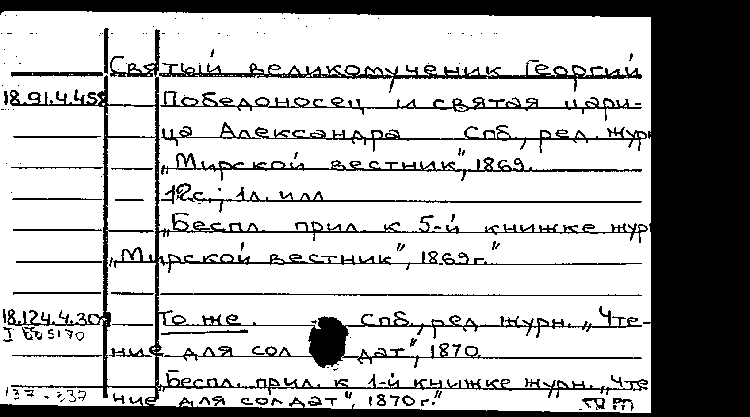 Святый великомученик Георгий
18.91.4.458 Победоносец и святая цари-
ца Александра Спб, ред. журн
„Мирской вестник", 1869.
12с.; 1л. илл
„Беспл. прил. к 5-й книжке жур
„Мирской вестник", 1869г."
18.124.4.307 То же. Спб, ред журн. „Чте-
ние для солдат", 1870.
„Беспл. прил. к 1-й книжке журн. „Чте
ние для солдат", 1870г."